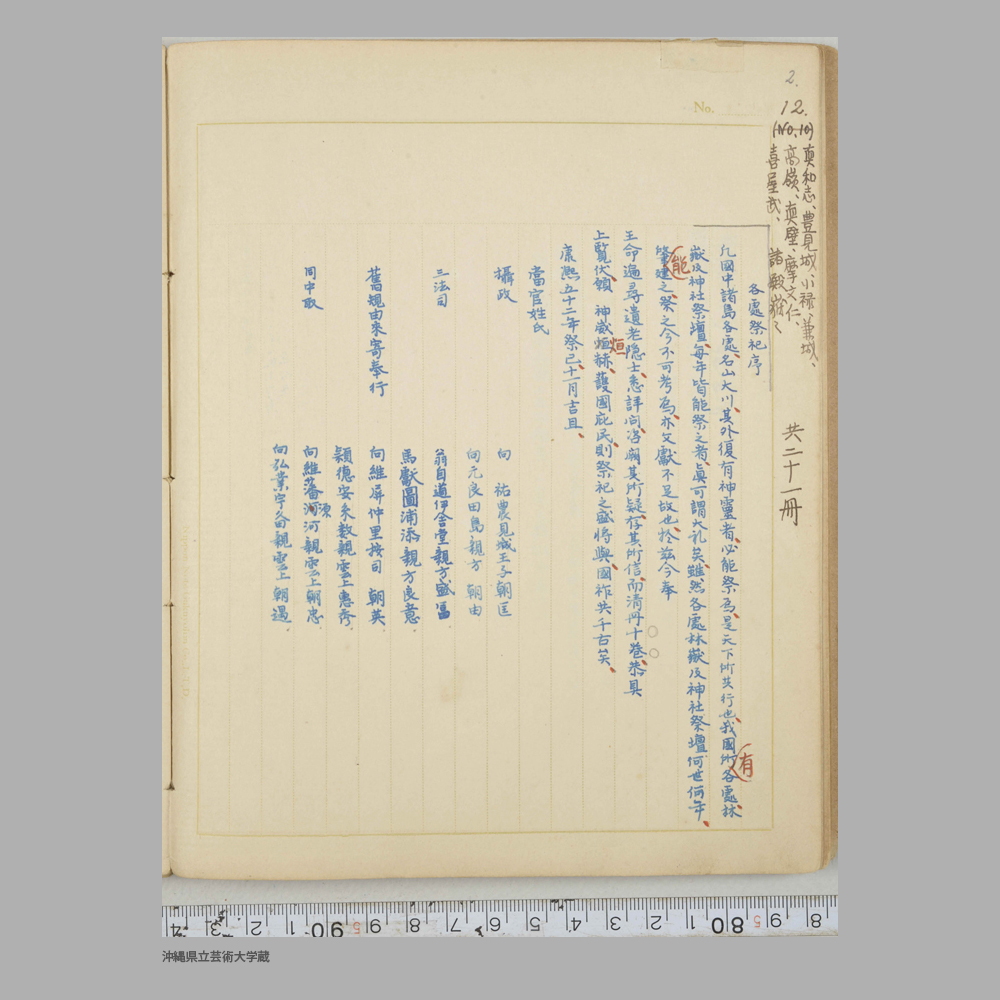 2.
12.
(No.10)
真和志、豊見城、小禄、兼城、
高嶺、真壁、摩文仁、
喜屋武、諸殿嶽々
共二十一冊
No.
各處祭祀序
凡國中諸島各處名山大川其外復有神靈者必能祭焉是天下所共行也我國所各處林
有
嶽及神社祭壇毎年皆能祭之者眞可謂大礼矣雖然各處林嶽及神社祭壇何世何年
肇建之祭之今不可考焉亦文獻不足故也於茲今奉
能
王命遍尋遺老隠士悉詳問咨朝其所疑存其所信而清冊十巻恭具
上覧伏願 神威烜赫護國庇民則祭祀之盛将與國祚共千古矣
烜
康熙五十二年祭已十一月吉旦
當官姓氏
攝政 向 祐豊見城王子朝匡
向元良田島親方 朝由
三法司 翁自道伊舎堂親方盛冨
馬獻圖浦添親方良意
舊規由來寄奉行 向維屏仲里按司 朝英
穎德安來數親雲上惠秀
同中取 向維蕃河河親雲上朝忠
湊
向弘業宇久田親雲上朝遇
沖縄県立芸術大学蔵
4 3 2 1 90 9 8 7 6 5 4 3 2 1 80 9 8